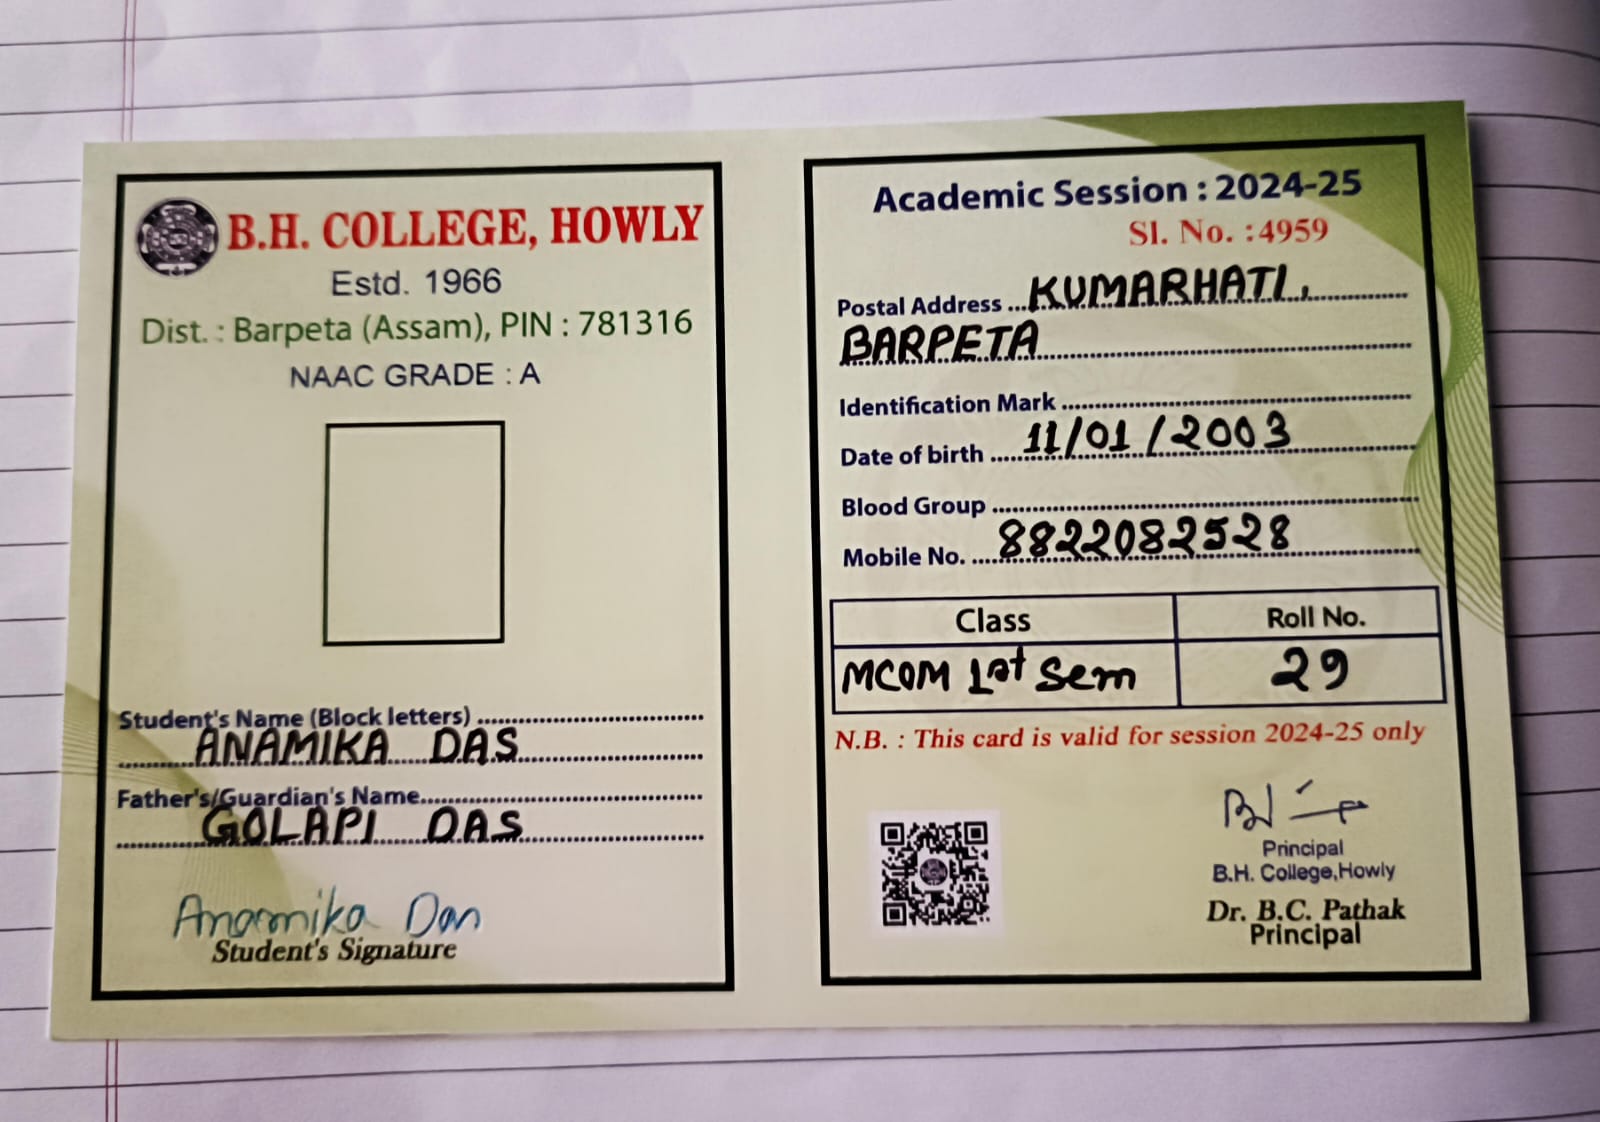 B.H. COLLEGE, HOWLY
Estd. 1966
Dist. : Barpeta (Assam), PIN : 781316
NAAC GRADE : A
Student's Name (Block letters)
ANAMIKA DAS
Father's/Guardian's Name
GOLAPI DAS
Anamika Das
Student's Signature
Academic Session : 2024-25
Sl. No. : 4959
Postal Address KUMARHATI,
BARPETA
Identification Mark
Date of birth 11/01/2003
Blood Group
Mobile No. 8822082528
Class Roll No.
MCOM 1st Sem 29
N.B. : This card is valid for session 2024-25 only
Principal
B.H. College,Howly
Dr. B.C. Pathak
Principal